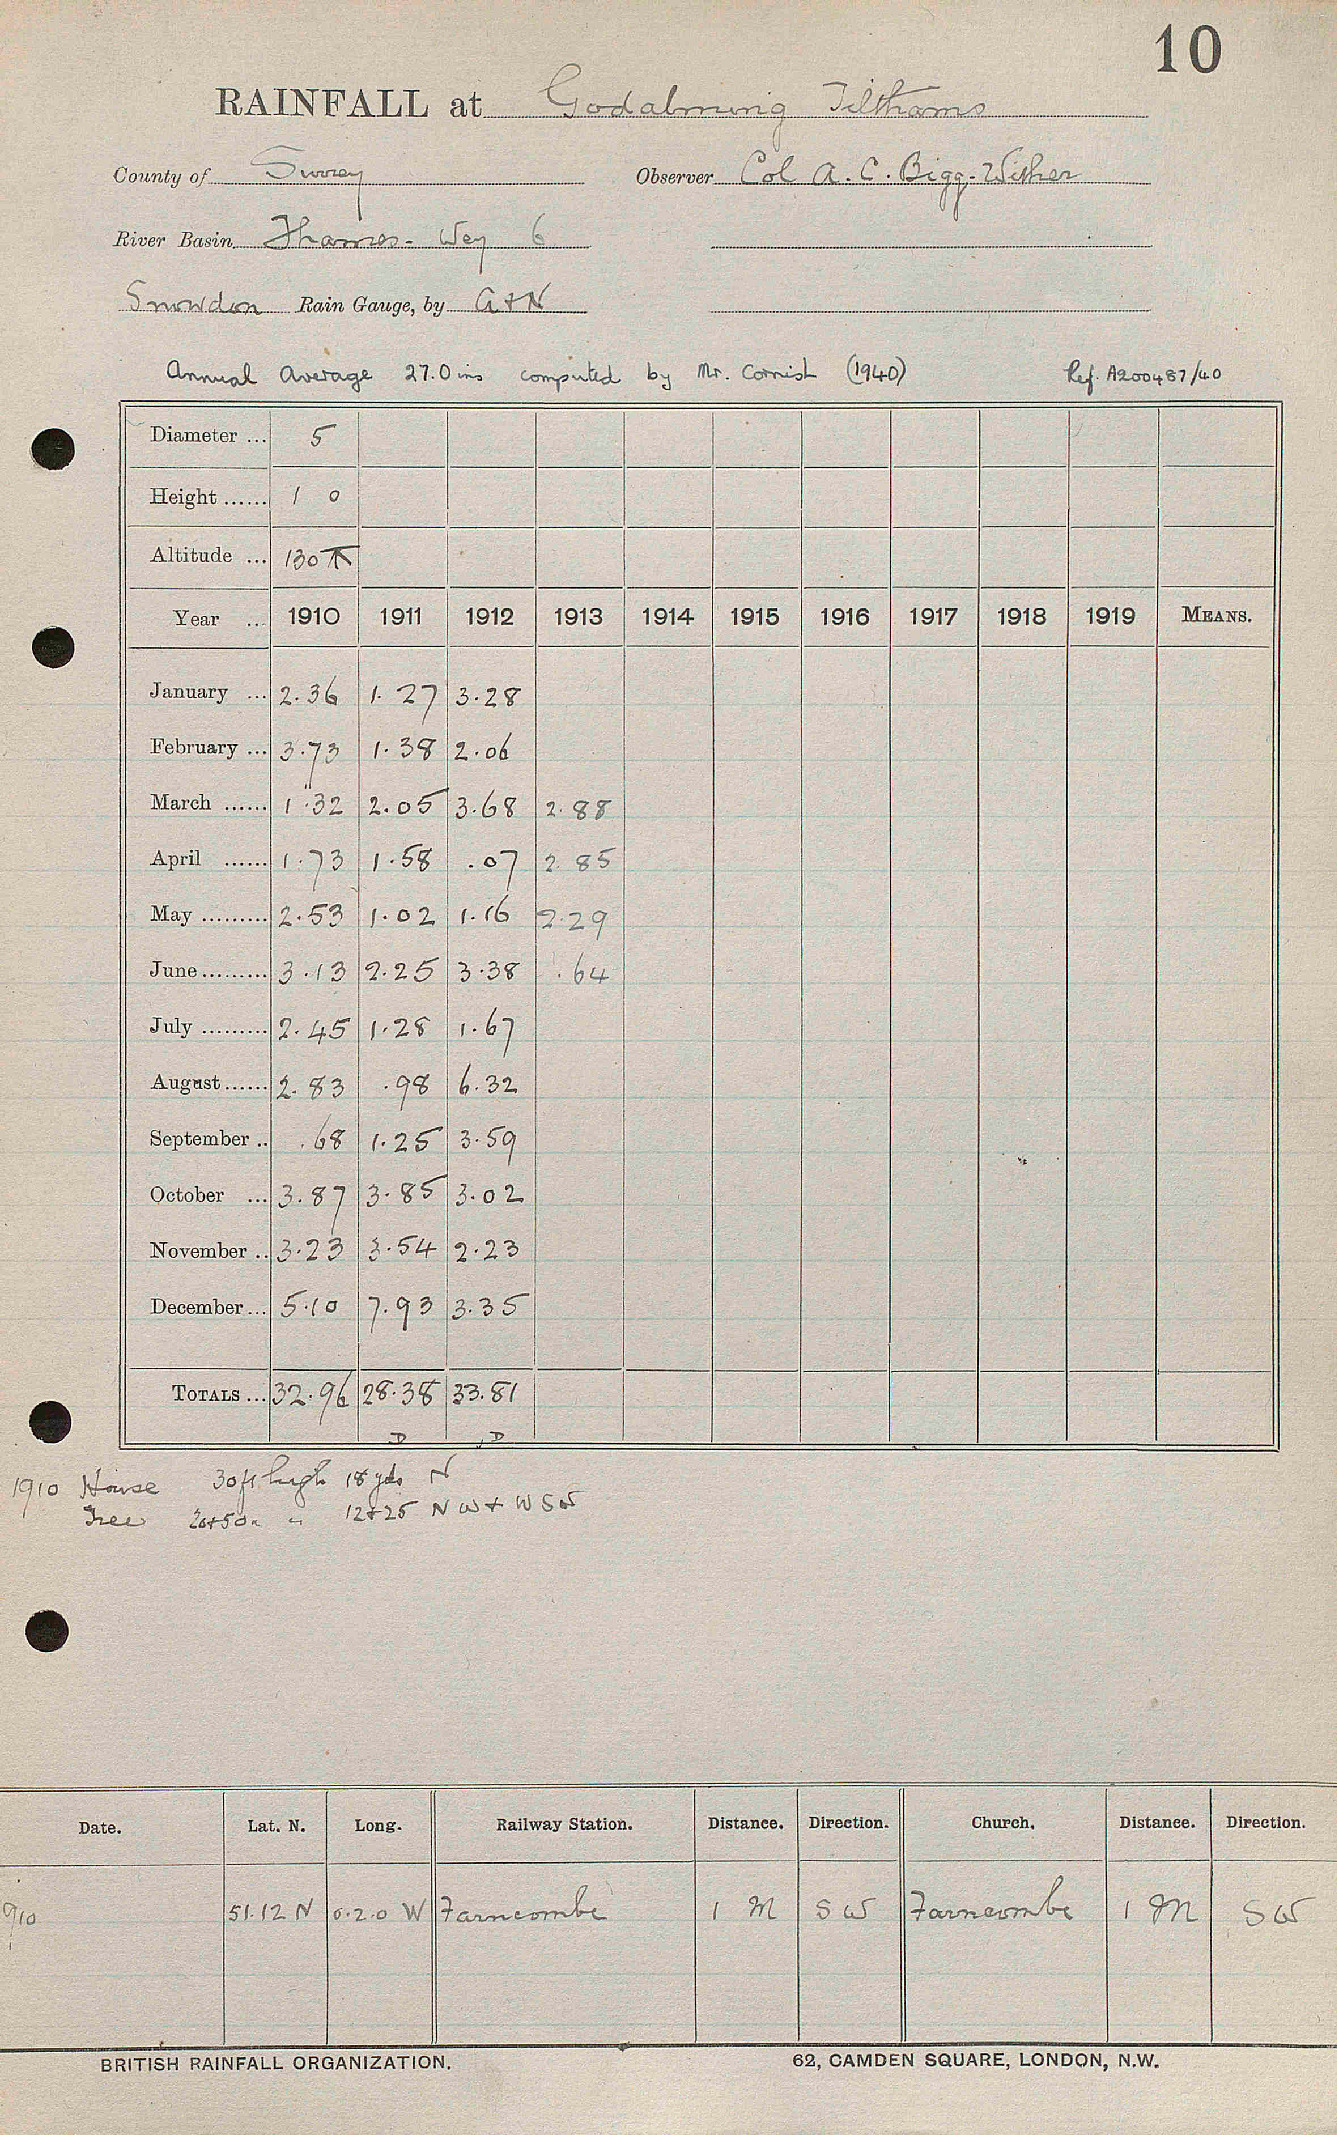 10
RAINFALL at Godalming Tilthams
County of Surrey Observer Col A. C. Bigg-Wither
River Basin Thames - Wey 6
Snowdon Rain Gauge, by A + N
Annual Average 27.0 ins computed by Mr. Cornish (1940) Ref. A200487/40
Diameter ... 5
Height ...... 1 0
Altitude ... 130
Year ... 1910 1911 1912 1913 1914 1915 1916 1917 1918 1919 MEANS.
January ... 2.36 1.27 3.28
February ... 3.73 1.38 2.06
March ...... 1.32 2.05 3.68 2.88
April ...... 1.73 1.58 .07 2.85
May ......... 2.53 1.02 1.16 2.29
June ......... 3.13 2.25 3.38 .64
July ......... 2.45 1.28 1.67
August ...... 2.83 .98 6.32
September .. .68 1.25 3.59
October ... 3.87 3.85 3.02
November .. 3.23 3.54 2.23
December ... 5.10 7.93 3.35
TOTALS ... 32.96 28.38 33.81
D D
1910 House 30 ft high 18 yds N
Tree 20+50 " " 12+25 NW + WSW
Date. Lat. N. Long. Railway Station. Distance. Direction. Church. Distance. Direction.
910 51.12 N 0.2.0 W Farncombe 1 M SW Farncombe 1 M SW
BRITISH RAINFALL ORGANIZATION. 62, CAMDEN SQUARE, LONDON, N.W.